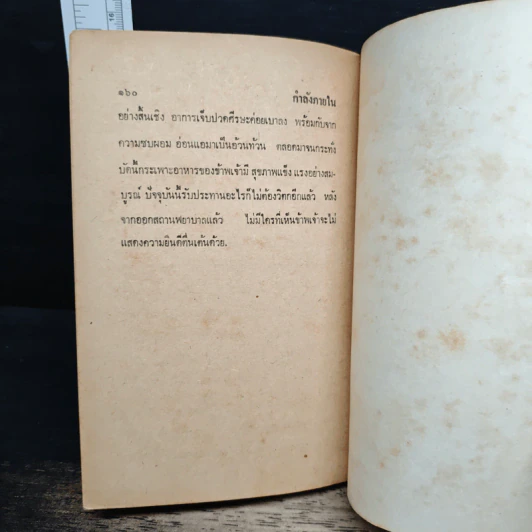 ๑๖๐ กำลังภายใน
อย่างสิ้นเชิง อาการเจ็บปวดศีรษะค่อยเบาลง พร้อมกับจาก
ความซบผอม อ่อนแอมาเป็นอ้วนท้วน ตลอดมาจนกระทั่ง
บัดนี้กระเพาะอาหารของข้าพเจ้ามี สุขภาพแข็ง แรงอย่างสม-
บูรณ์ ปัจจุบันนี้รับประทานอะไรก็ไม่ต้องวิตกอีกแล้ว หลัง
จากออกสถานพยาบาลแล้ว ไม่มีใครที่เห็นข้าพเจ้าจะไม่
แสดงความยินดีตื่นเต้นด้วย.
16